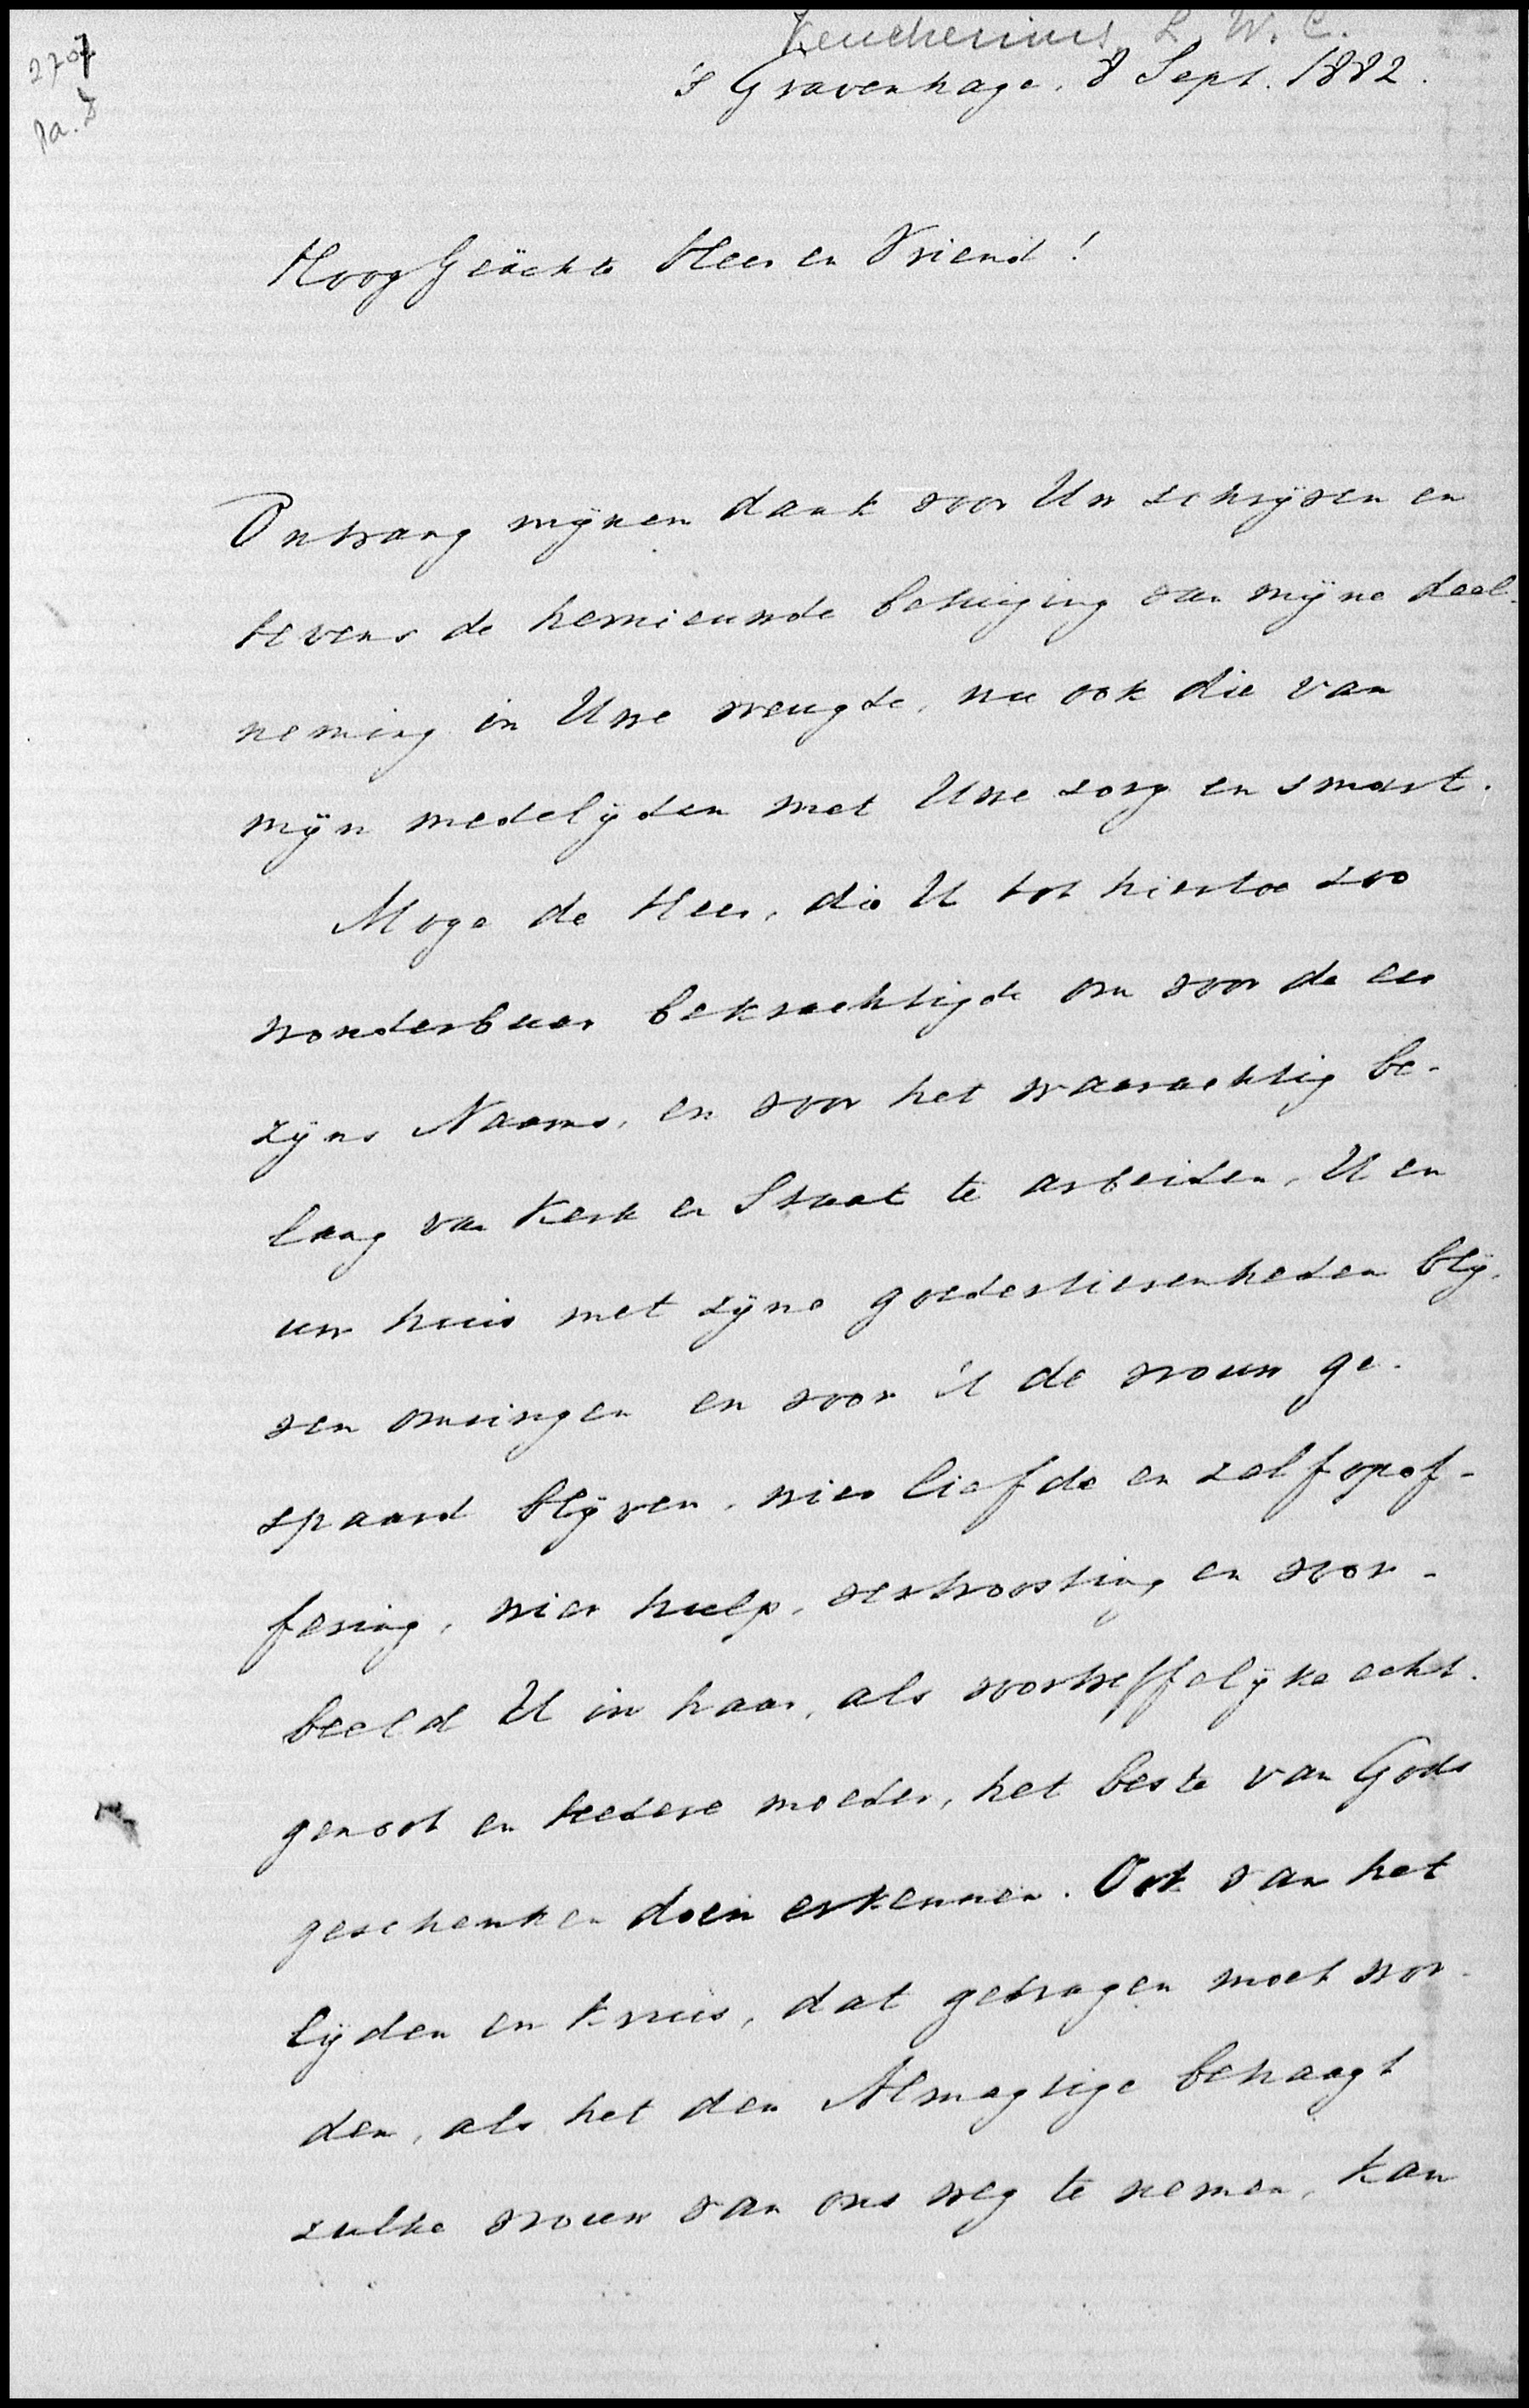 2707
Pa. D
Keuchenius, L. W. C.
's Gravenhage, 8 Sept. 1882.
Hoog Geächte Heer en Vriend!
Ontvang mijnen dank voor Uw schrijven en
tevens de hernieuwde betuiging van mijne deel-
neming in Uwe vreugde, nu ook die van
mijn medelijden met Uwe zorg en smart.
Moge de Heer, die U tot hiertoe zoo
wonderbaar bekrachtigde om voor de eer
zijns Naams, en voor het waarachtig be-
lang van Kerk en Staat te arbeiden, U en
uw huis met zijne goedertierenheden blij-
ven omringen en voor U de vrouw ge-
spaard blijven, wier liefde en zelfopof-
fering, wier hulp, vertroosting en voor-
beeld U in haar, als voortreffelijke echt-
genoot en teedere moeder, het beste van Gods
geschenken doen erkennen. Ook van het
lijden en kruis, dat gedragen moet wor-
den, als het den Almagtige behaagt
zulke vrouw van ons weg te nemen, kan